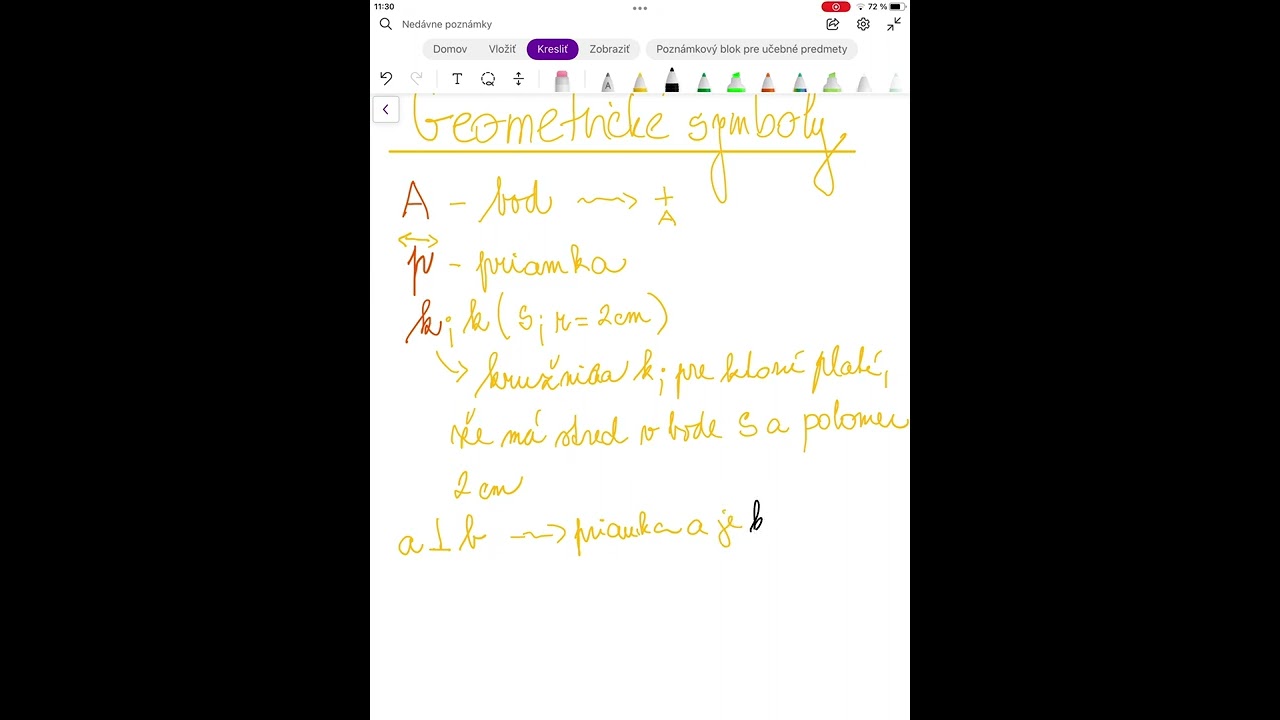 11:30
72 %
Nedávne poznámky
Domov Vložiť Kresliť Zobraziť Poznámkový blok pre učebné predmety
T A
Geometrické symboly
A - bod → + A
↔
p - priamka
k; k (S; r = 2cm)
↳ kružnica k; pre ktorú platí,
že má stred v bode S a polomer
2 cm
a ⊥ b → priamka a je k